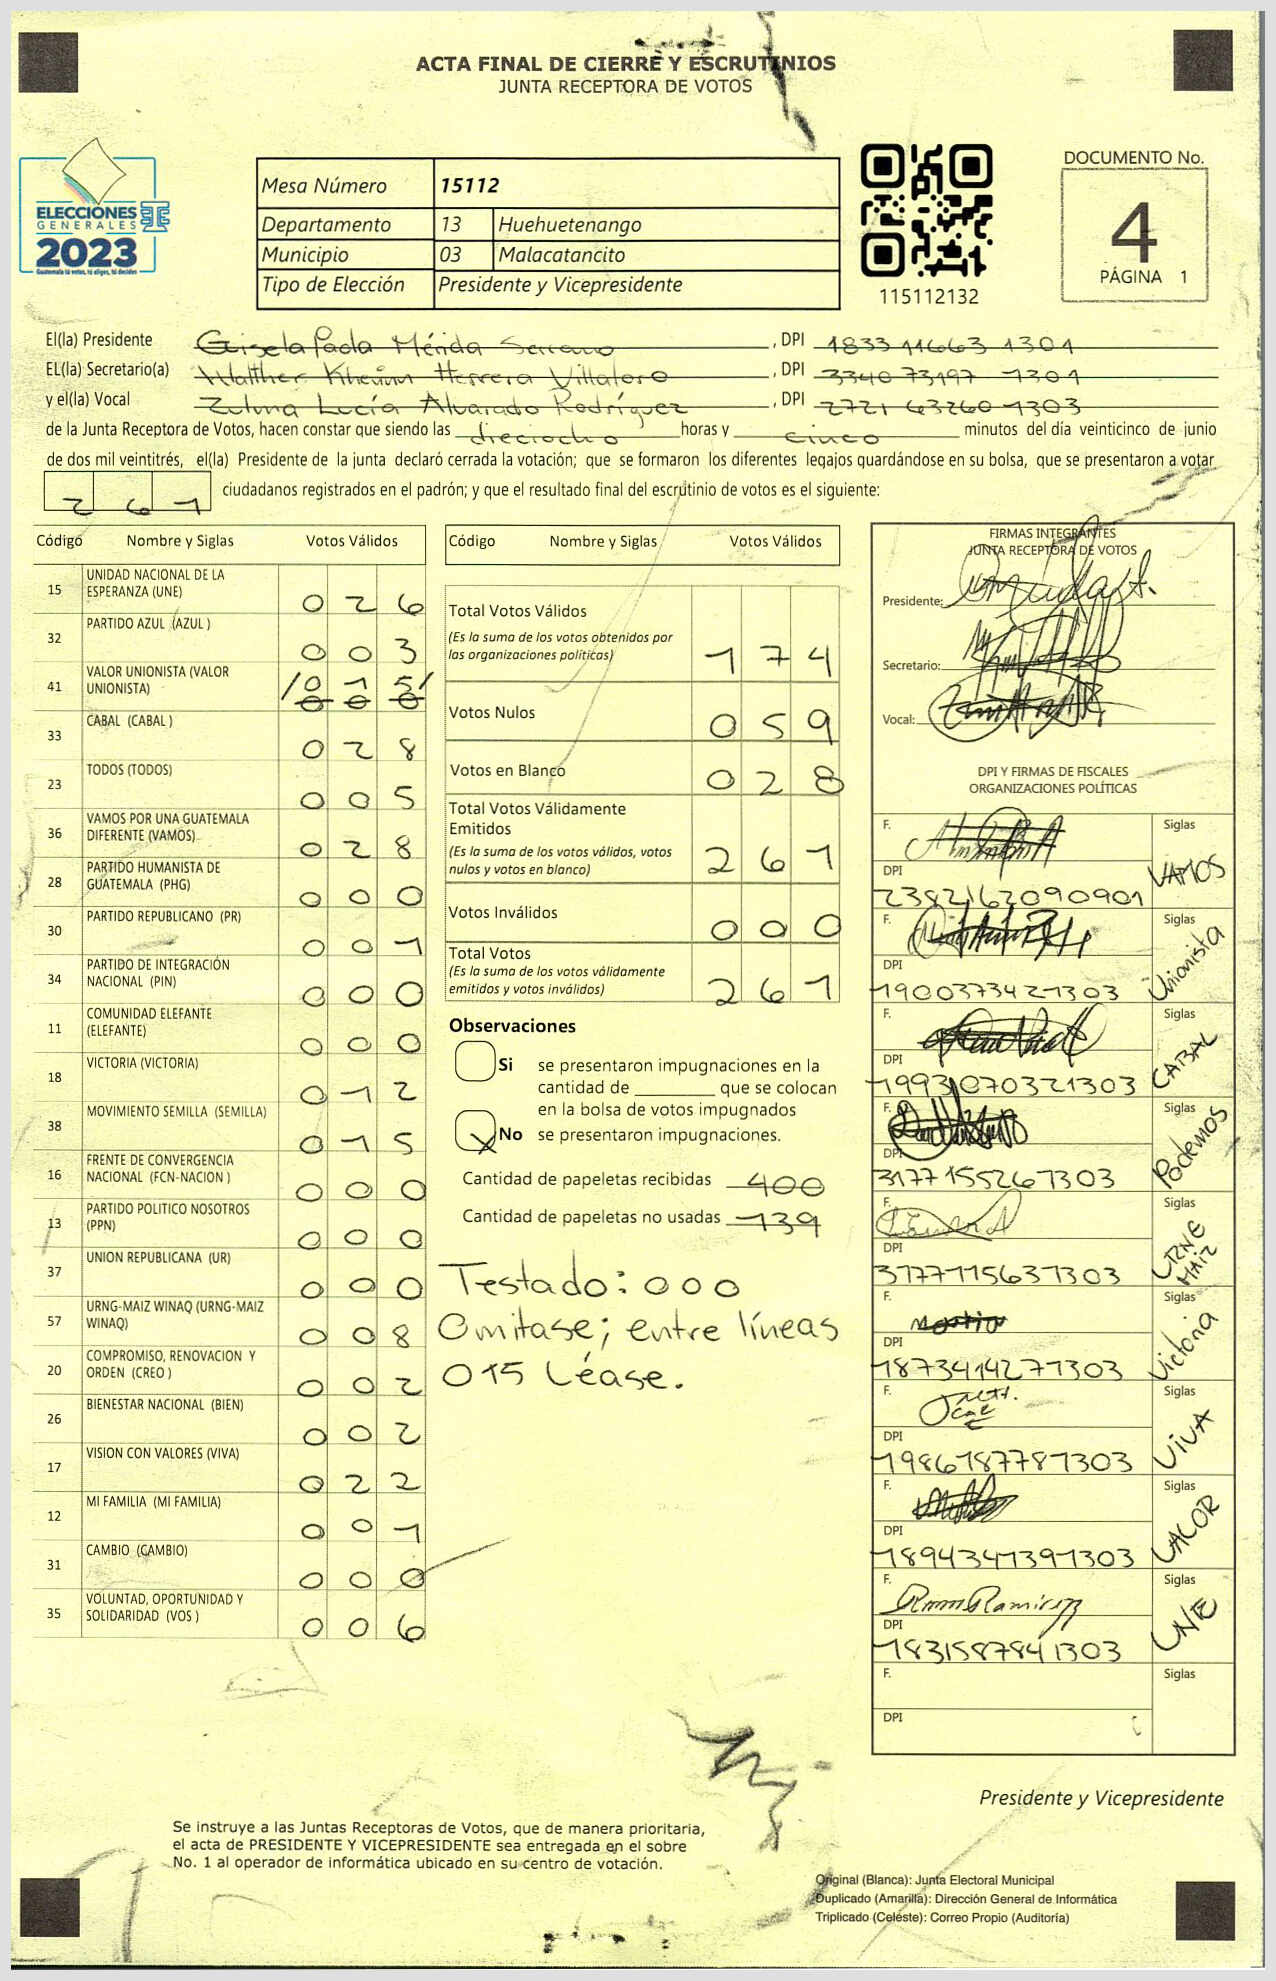 ACTA FINAL DE CIERRE Y ESCRUTINIOS
JUNTA RECEPTORA DE VOTOS
ELECCIONES
GENERALES
2023
Guatemala tú votas, tú eliges, tú decides
Mesa Número 15112
Departamento 13 Huehuetenango
Municipio 03 Malacatancito
Tipo de Elección Presidente y Vicepresidente
115112132
DOCUMENTO No.
4
PÁGINA 1
El(la) Presidente Gisela Paola Mérida Serrano, DPI 1833 11663 1301
EL(la) Secretario(a) Walther Herrera Villatoro, DPI 3340 73197 1301
y el(la) Vocal Zulma Lucía Alvarado Rodríguez, DPI 2721 63260 1303
de la Junta Receptora de Votos, hacen constar que siendo las dieciocho horas y cinco minutos del día veinticinco de junio
de dos mil veintitrés, el(la) Presidente de la junta declaró cerrada la votación; que se formaron los diferentes legajos guardándose en su bolsa, que se presentaron a votar
261 ciudadanos registrados en el padrón; y que el resultado final del escrutinio de votos es el siguiente:
Código Nombre y Siglas Votos Válidos
15 UNIDAD NACIONAL DE LA ESPERANZA (UNE) 026
32 PARTIDO AZUL (AZUL ) 003
41 VALOR UNIONISTA (VALOR UNIONISTA) /015/ 000
33 CABAL (CABAL ) 028
23 TODOS (TODOS) 005
36 VAMOS POR UNA GUATEMALA DIFERENTE (VAMOS) 028
28 PARTIDO HUMANISTA DE GUATEMALA (PHG) 000
30 PARTIDO REPUBLICANO (PR) 001
34 PARTIDO DE INTEGRACIÓN NACIONAL (PIN) 000
11 COMUNIDAD ELEFANTE (ELEFANTE) 000
18 VICTORIA (VICTORIA) 012
38 MOVIMIENTO SEMILLA (SEMILLA) 015
16 FRENTE DE CONVERGENCIA NACIONAL (FCN-NACION ) 000
13 PARTIDO POLITICO NOSOTROS (PPN) 000
37 UNION REPUBLICANA (UR) 000
57 URNG-MAIZ WINAQ (URNG-MAIZ WINAQ) 008
20 COMPROMISO, RENOVACION Y ORDEN (CREO ) 002
26 BIENESTAR NACIONAL (BIEN) 002
17 VISION CON VALORES (VIVA) 022
12 MI FAMILIA (MI FAMILIA) 001
31 CAMBIO (CAMBIO) 000
35 VOLUNTAD, OPORTUNIDAD Y SOLIDARIDAD (VOS ) 006
Código Nombre y Siglas Votos Válidos
Total Votos Válidos 174
(Es la suma de los votos obtenidos por
las organizaciones políticas)
Votos Nulos 059
Votos en Blanco 028
Total Votos Válidamente
Emitidos 261
(Es la suma de los votos válidos, votos
nulos y votos en blanco)
Votos Inválidos 000
Total Votos 261
(Es la suma de los votos válidamente
emitidos y votos inválidos)
Observaciones
Si se presentaron impugnaciones en la
cantidad de ________ que se colocan
en la bolsa de votos impugnados
X No se presentaron impugnaciones.
Cantidad de papeletas recibidas 400
Cantidad de papeletas no usadas 139
Testado: 000
Omitase; entre líneas
015 Léase.
FIRMAS INTEGRANTES
JUNTA RECEPTORA DE VOTOS
Presidente:
Secretario:
Vocal:
DPI Y FIRMAS DE FISCALES
ORGANIZACIONES POLÍTICAS
F. Siglas VAMOS
DPI 2382162090901
F. Siglas Unionista
DPI 1900373421303
F. Siglas CABAL
DPI 1993107032 1303
F. Siglas Podemos
DPI 3177155261303
F. Siglas URNG MAIZ
DPI 3177115631303
F. Siglas Victoria
DPI 1873414271303
F. Siglas VIVA
DPI 1986187781303
F. Siglas VALOR
DPI 1894341391303
F. Ramirez Siglas UNE
DPI 1831587841303
F. Siglas
DPI
Presidente y Vicepresidente
Se instruye a las Juntas Receptoras de Votos, que de manera prioritaria,
el acta de PRESIDENTE Y VICEPRESIDENTE sea entregada en el sobre
No. 1 al operador de informática ubicado en su centro de votación.
Original (Blanca): Junta Electoral Municipal
Duplicado (Amarilla): Dirección General de Informática
Triplicado (Celeste): Correo Propio (Auditoría)